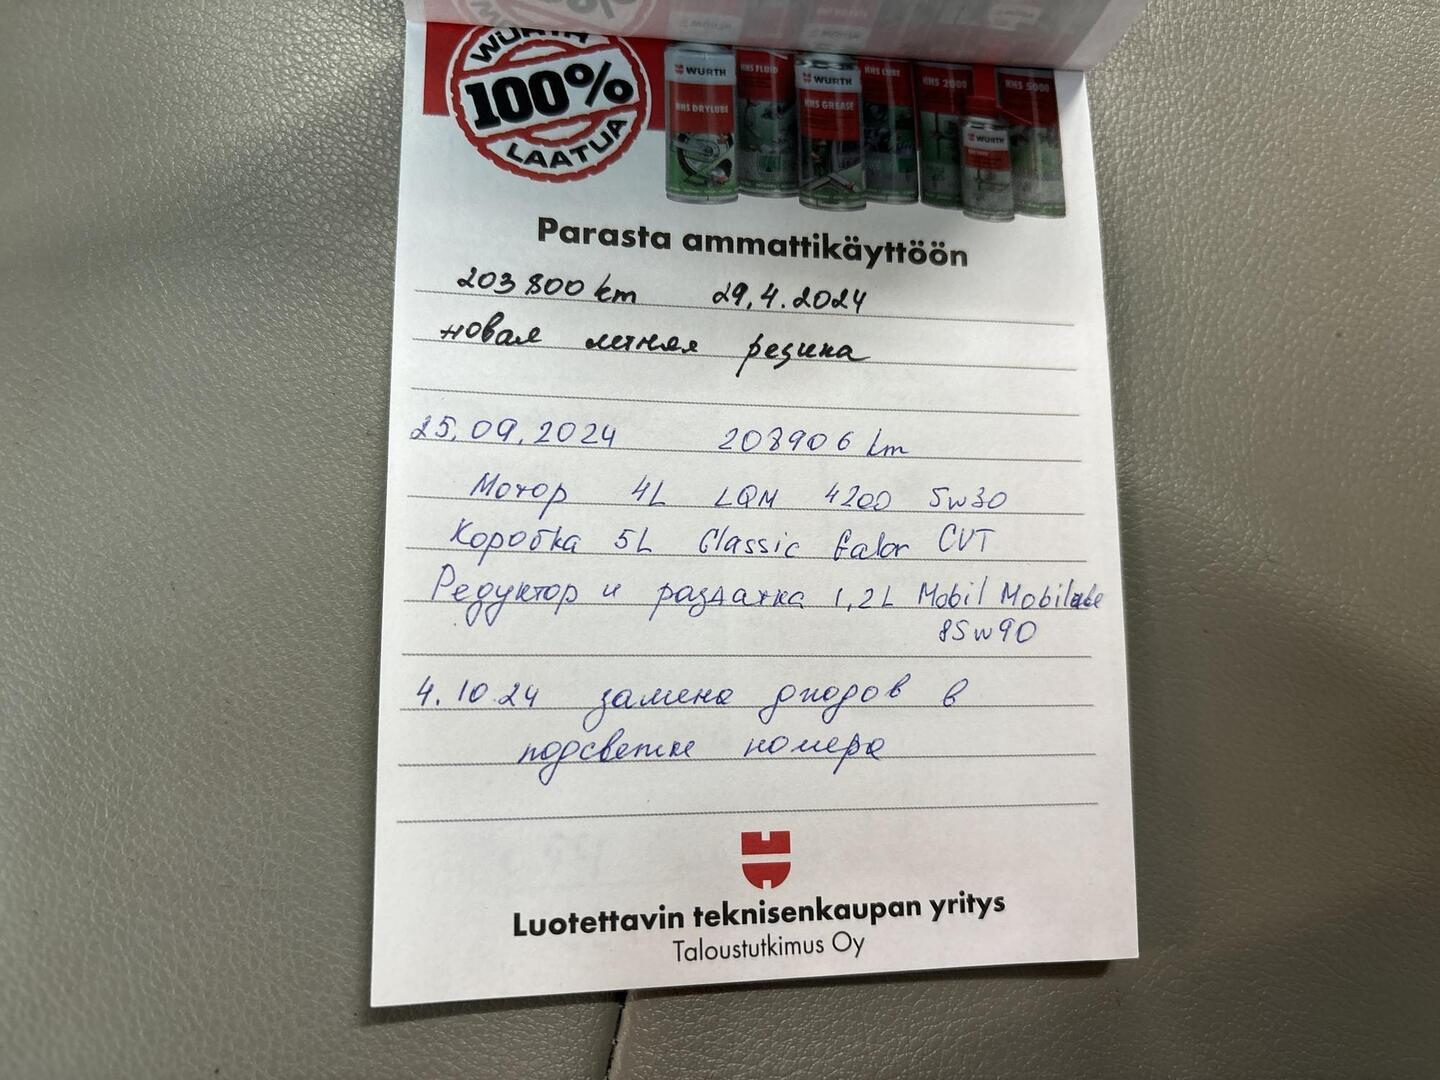 WÜRTH
100%
LAATUA
WÜRTH
HHS DRYLUBE
HHS FLUID
WÜRTH
HHS GREASE
HHS LUBE
HHS 2000
WÜRTH
HHS 5000
Parasta ammattikäyttöön
203 800 km 29.4.2024
новая летняя резина
25.09.2024 208906 km
Мотор 4L LQM 4200 5w30
Коробка 5L Classic CVT
Редуктор и раздатка 1,2L Mobil Mobilube
85w90
4.10.24 замена диодов в
подсветке номера
Luotettavin teknisenkaupan yritys
Taloustutkimus Oy